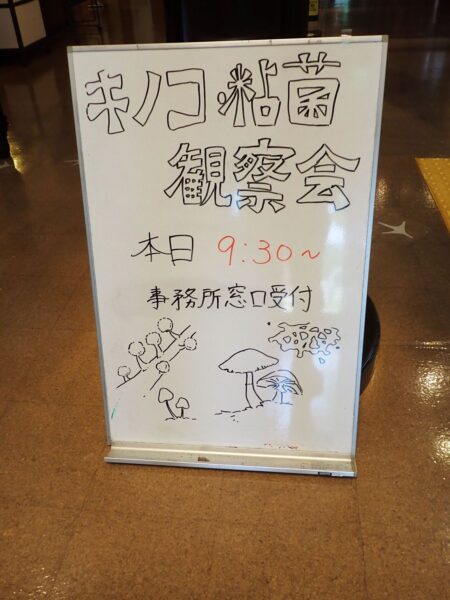 キノコ・粘菌
観察会
本日 9:30~
事務所窓口受付